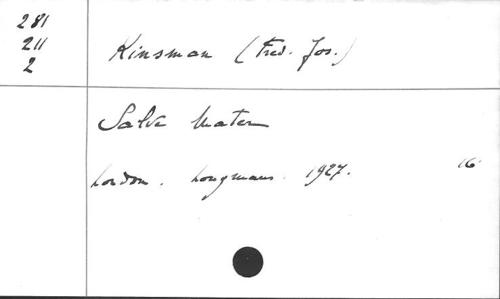 281
211
2
Kinsman (Fred. Jos.)
Salve Mater
London. Longmans. 1927. 16